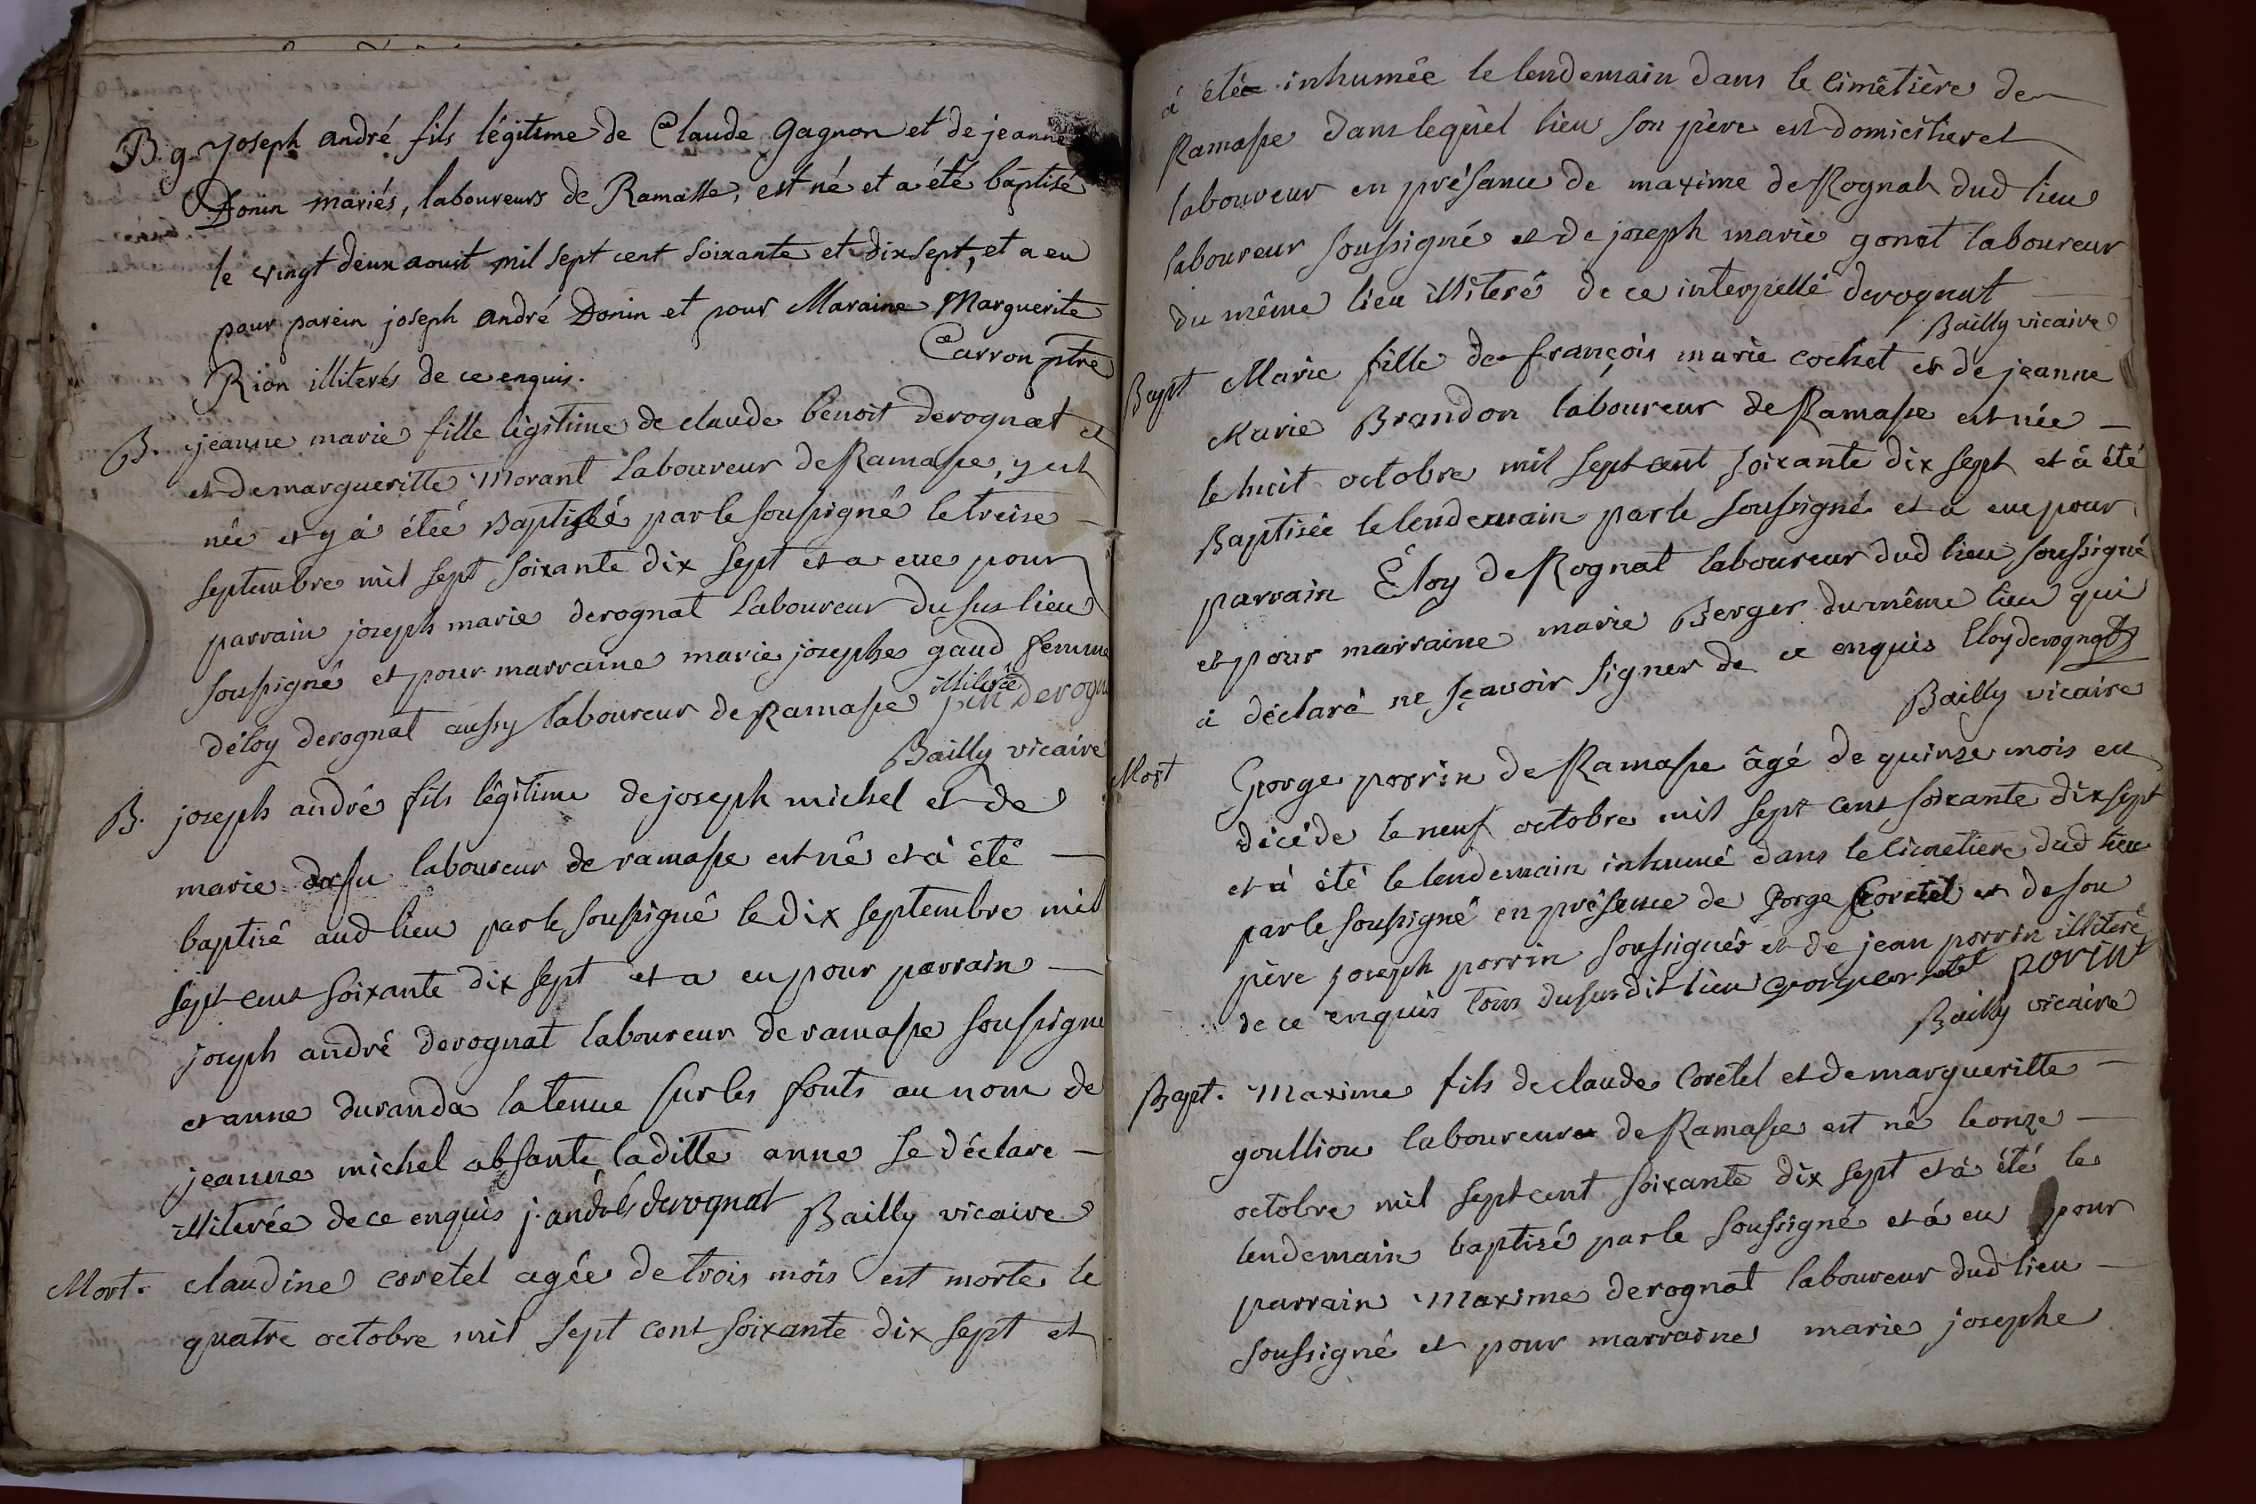 B. g. Joseph andré fils légitime de Claude gagnon et de jeanne
Donin mariés, laboureurs de Ramasse, est né et a été baptisé
le vingt deux aoust mil sept cent soixante et dix sept, et a eu
pour parein joseph andré Donin et pour Maraine Marguerite
Rion illiterés de ce enquis. Carron ptre
B. jeanne marie fille légitime de claude benoit derognat et
et de margueritte Morant laboureur de Ramasse, y est
née et y à étée Baptisée par le soussigné le treise
septembre mil sept soixante dix sept et a eue pour
parrain joseph marie derognat laboureur du sus lieu
soussigné et pour marraine marie josephe gaud femme
déloy derognat aussy laboureur de Ramasse illiterée
Bailly vicaire
B. joseph andré fils légitime de joseph michel et de
marie laboureur de ramasse est né et à été
baptisé aud lieu par le soussigné le dix septembre mil
sept cent soixante dix sept et a eu pour parrain
joseph andré derognat laboureur de ramasse soussigné
et anne duranda la tenue sur les fonts au nom de
jeanne michel absante laditte anne se déclare
illiterée de ce enquis j. andré derognat Bailly vicaire
Mort. claudine coretel agée de trois mois est morte le
quatre octobre mil sept cent soixante dix sept et
à étée inhumée le lendemain dans le cimêtière de
Ramasse dans lequel lieu son père est domicilier et
laboureur en présance de maxime deRognat dud lieu
laboureur soussigné et de joseph marie gonet laboureur
du même lieu illiteré de ce interpellé derognat
Bailly vicaire
Bapt Marie fille de françois marie cochet et de jeanne
Marie Brandon laboureur de Ramasse est née
le huit octobre mil sept cent soixante dix sept et à été
Baptisée le lendemain par le soussigné et a eue pour
parrain Éloy deRognat laboureur dud lieu soussigné
et pour marraine marie Berger du même lieu qui
à déclaré ne sçavoir signer de ce enquis Eloy derognat
Bailly vicaire
Mort George porrin de Ramasse âgé de quinze mois est
décédé le neuf octobre mil sept cent soixante dix sept
et à été le lendemain inhumé dans le cimetiere dud lieu
par le soussigné en présence de George Coretel et de son
père joseph porrin soussignés et de jean porrin illiteré
de ce enquis tous du susdit lieu george coretel porin
Bailly vicaire
Bapt. Maxime fils de claude Coretel et de margueritte
goullion laboureurs de Ramasse est né le onze
octobre mil sept cent soixante dix sept et à été le
lendemain baptisé par le soussigné et à eu pour
parrain Maxime derognat laboureur dud lieu
soussigné et pour marraine marie josephe